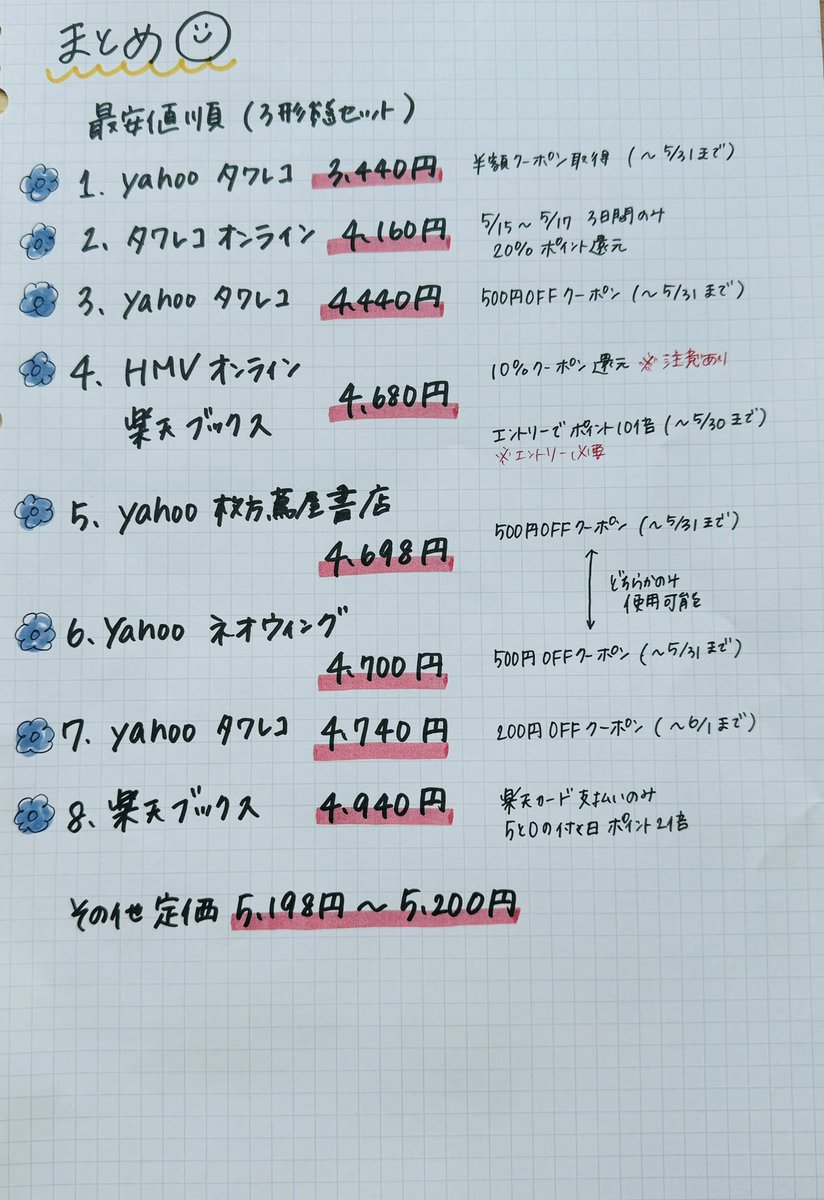 まとめ
最安値順(3形態セット)
1. yahoo タワレコ 3,440円 半額クーポン取得 (~5/31まで)
2. タワレコ オンライン 4,160円 5/15~5/17 3日間のみ
20% ポイント還元
3. yahoo タワレコ 4,440円 500円OFFクーポン (~5/31まで)
4. HMV オンライン 10%クーポン還元 ※注意あり
楽天ブックス 4,680円 エントリーでポイント10倍(~5/30まで)
※エントリー必要
5. yahoo 枚方蔦屋書店
4,698円 500円OFFクーポン (~5/31まで)
どちらかのみ
使用可能
6. Yahoo ネオウィング
4,700円 500円OFFクーポン (~5/31まで)
7. yahoo タワレコ 4,740円 200円OFFクーポン (~6/1まで)
8. 楽天ブックス 4,940円 楽天カード支払いのみ
5と0の付く日 ポイント2倍
その他 定価 5,198円~5,200円